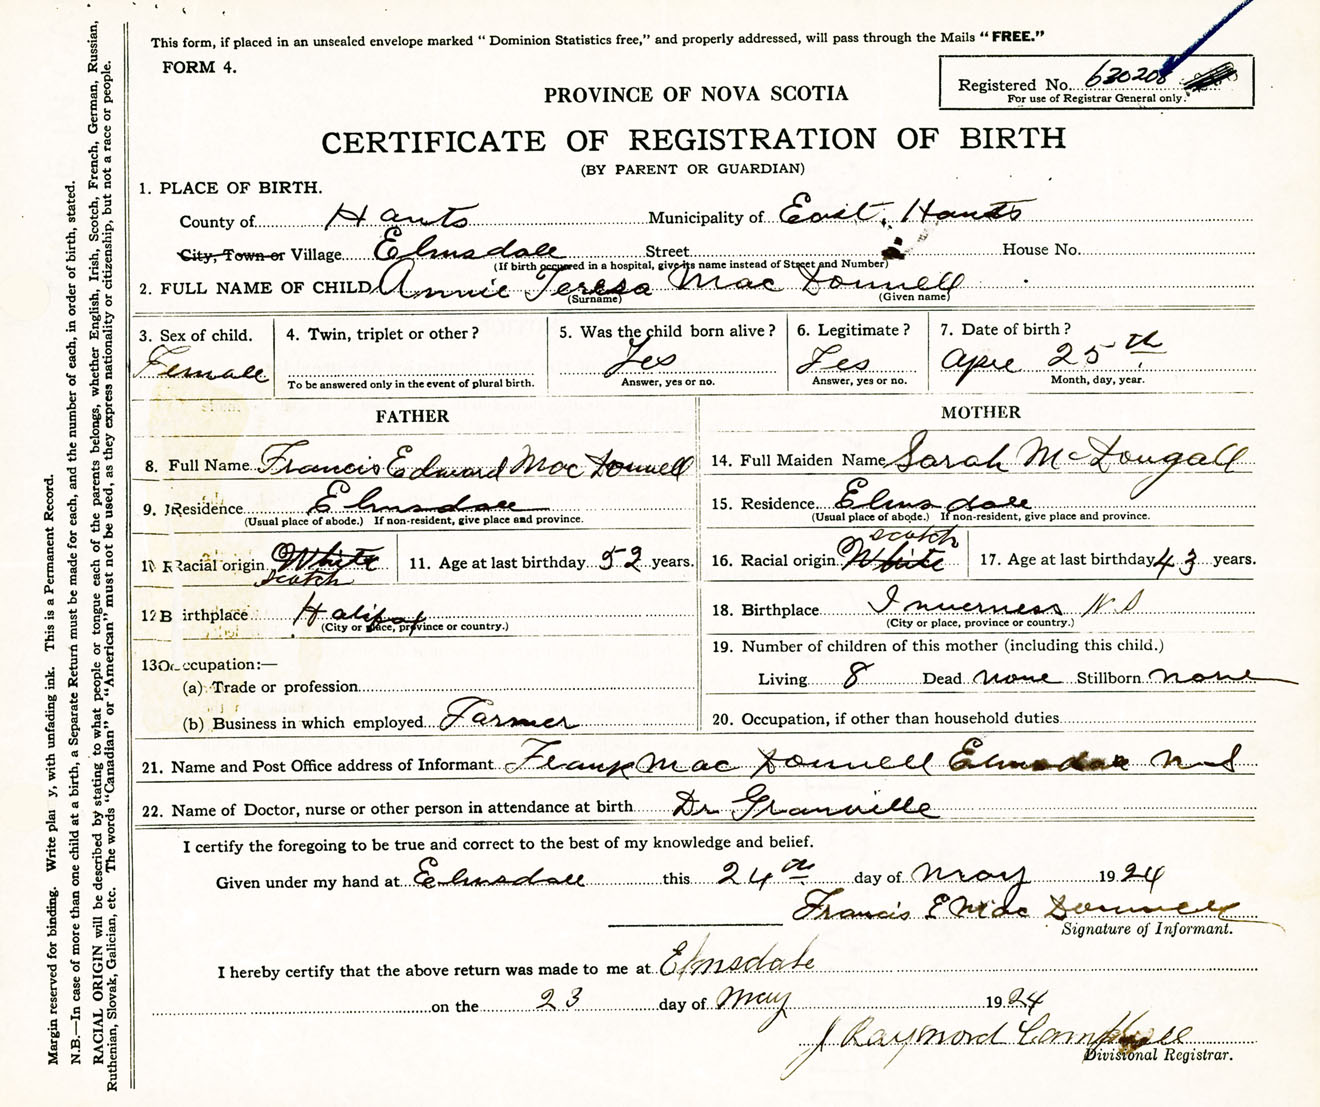 This form, if placed in an unsealed envelope marked “ Dominion Statistics free,” and properly addressed, will pass through the Mails “ FREE.”
FORM 4.
Registered No. 630208
For use of Registrar General only.
PROVINCE OF NOVA SCOTIA
CERTIFICATE OF REGISTRATION OF BIRTH
(BY PARENT OR GUARDIAN)
1. PLACE OF BIRTH.
County of Hants Municipality of East, Hants
City, Town or Village Elmsdale Street House No.
(If birth occurred in a hospital, give its name instead of Street and Number)
2. FULL NAME OF CHILD Annie Teresa Mac Donnell
(Surname) (Given name)
3. Sex of child. 4. Twin, triplet or other ? 5. Was the child born alive ? 6. Legitimate ? 7. Date of birth ?
Female Yes Yes Apre 25th
To be answered only in the event of plural birth. Answer, yes or no. Answer, yes or no. Month, day, year.
FATHER MOTHER
8. Full Name Francis Edward Mac Donnell 14. Full Maiden Name Sarah Mc Dougall
9. Residence Elmsdale 15. Residence Elmsdale
(Usual place of abode.) If non-resident, give place and province. (Usual place of abode.) If non-resident, give place and province.
10 Racial origin White scotch 11. Age at last birthday 52 years. 16. Racial origin White scotch 17. Age at last birthday 43 years.
12 Birthplace Halifax 18. Birthplace Inverness N S
(City or place, province or country.) (City or place, province or country.)
13 Occupation:— 19. Number of children of this mother (including this child.)
(a) Trade or profession Living 8 Dead none Stillborn none
(b) Business in which employed Farmer 20. Occupation, if other than household duties
21. Name and Post Office address of Informant Frank Mac Donnell Elmsdale N S
22. Name of Doctor, nurse or other person in attendance at birth Dr Granville
I certify the foregoing to be true and correct to the best of my knowledge and belief.
Given under my hand at Elmsdale this 24th day of May 1924
Francis E Mac Donnell
Signature of Informant.
I hereby certify that the above return was made to me at Elmsdale
on the 23 day of May 1924
J Raymond Campbell
Divisional Registrar.
Margin reserved for binding. Write plainly, with unfading ink. This is a Permanent Record.
N.B.—In case of more than one child at a birth, a Separate Return must be made for each, and the number of each, in order of birth, stated.
RACIAL ORIGIN will be described by stating to what people or tongue each of the parents belongs, whether English, Irish, Scotch, French, German, Russian,
Ruthenian, Slovak, Galician, etc. The words “Canadian” or “American” must not be used, as they express nationality or citizenship, but not a race or people.